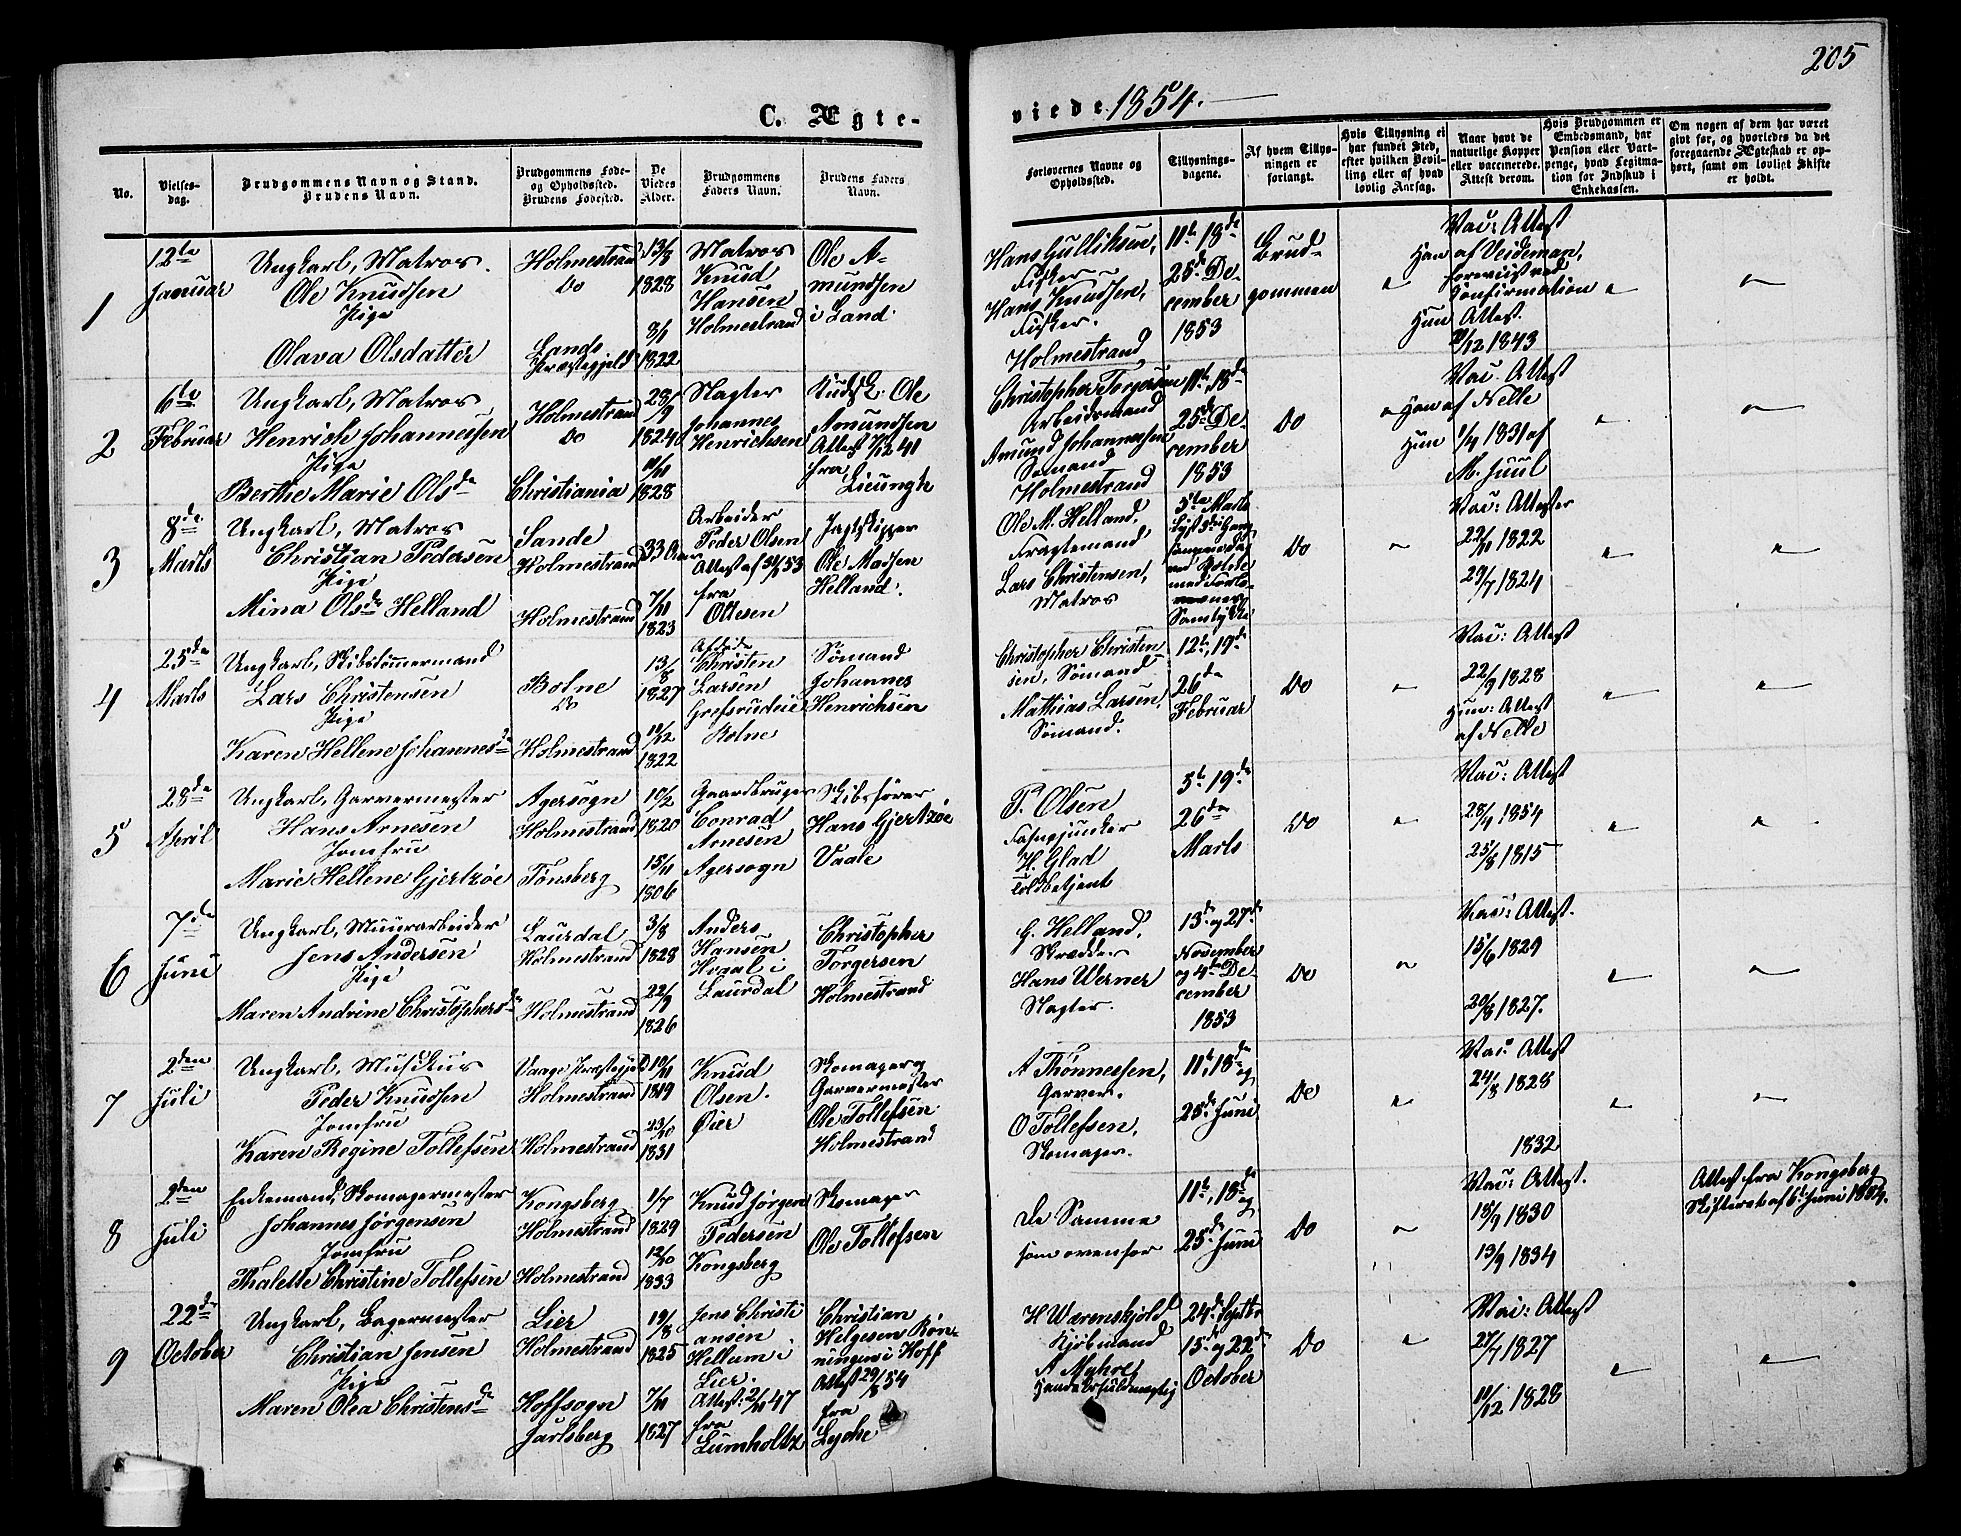 205
C. Ægte-
viede 1854.
No.
Vielses-
dag.
Brudgommens Navn og Stand.
Brudens Navn.
Brudgommens Føde-
og Opholdssted.
Brudens Fødested.
De
Viedes
Alder.
Brudgommens
Faders Navn.
Brudens Faders
Navn.
Forlovernes Navne og
Opholdssted.
Tillysnings-
dagene.
Af hvem Tillys-
ningen er
forlangt.
Hvis Tillysning ei
har fundet Sted,
efter hvilken Bevil-
ling eller af hvad
lovlig Aarsag.
Naar havt de
naturlige Kopper
eller vaccinerede.
Attest derom.
Hvis Brudgommen er
Embedsmand, har
Pension eller Vart-
penge, hvad Legitima-
tion for Indskud i
Enkekassen.
Om nogen af dem har været
givt før, og hvorledes da det
foregaaende Ægteskab er op-
hørt, samt om lovligt Skifte
er holdt.
1
12te
Januar
Ungkarl, Matros
Ole Knudsen
Pige
Olava Olsdatter
Holmestrand
do
Lands
Præstegjeld
13/8
1828
8/1
1822
Matros
Knud
Hansen
Holmestrand
Ole A-
mundsen
i Land
Hans Gulliksen,
Fisker
Hans Knudsen,
Fisker.
Holmestrand
11te 18de
25de De
cember
1853
Brud
gommen
"
Vac: Attest
Han af Veideman,
foreviist ved
Confirmation
Hun Attest
1843
"
"
2
6te
Februar
Ungkarl, Matros
Henrich Johannessen
Pige
Berthe Marie Olsda
Holmestrand
do
Christiania
28/9
1824
11/11
1828
Slagter
Johannes
Henrichsen
Ole
Amundsen
Attest 7/12 41
fra
Lieungh
Christopher Torgersen
Arbeidsmand
Amund Johannesen
Sømand
Holmestrand
11te, 18de
25de De-
cember
1853
Do
"
Vac. Attest
Han af Nelle
Hun 1/7 1831 af
M. Juul
"
"
3
8de
Marts
Ungkarl, Matros
Christian Pedersen
Pige
Mina Olsdr Helland
Sande
Holmestrand
Holmestrand
33 Aar
7/11
1823
Arbeider
Peder Olsen
Attest af 53
fra
Ottesen
Jagtskipper
Ole Madsen
Helland.
Ole M. Helland,
Fragtemand
Lars Christensen,
Matros
5te Marts
lyst 3die Gang
med Forlo-
vernes
Samtykke
Do
"
Vac: Attester
22/11 1822
29/7 1824
"
"
4
25de
Marts
Ungkarl, Skibstømmermand
Lars Christensen
Pige
Karen Hellene Johannesdr
Botne
do
Holmestrand
13/8
1827
11/12
1822
Afdøde
Christen
Larsen
Grefsrudeie
Botne
Sømand
Johannes
Henrichsen
Christopher Christen
sen, Sømand
Mathias Larsen,
Sømand.
12te, 19de
26de
Februar
Do
"
Vac: Attest
22/9 1828
Hun: Attest
af Nelle
"
"
5
28de
April
Ungkarl, Garvermester
Hans Arnesen
Jomfru
Marie Hellene Gjertzøe
Agersogn
Holmestrand
Tønsberg
10/2
1820
15/11
1806
Gaardbruger
Conrad
Arnesen
Agersogn
Skibsfører
Hans Gjertzøe
Vaale
P. Olsen
Fahnejunker
H. Glad
Toldbetjent
5te 19de
26de
Marts
Do
"
Vac: Attest
28/4 1854
25/8 1815
"
"
6
7de
Juni
Ungkarl, Muurarbeider
Jens Andersen
Pige
Maren Andrine Christophersdr
Laurdal
Holmestrand
Holmestrand
3/8
1828
22/9
1826
Anders
Hansen
Hvaal i
Laurdal
Christopher
Torgersen
Holmestrand
G. Helland,
Skrædder
Hans Werner
Slagter.
13de og 27de
November
og 4de De
cember
1853
Do
"
Vac: Attest.
15/6 1829
20/8 1827.
"
"
7
2den
Juli
Ungkarl, Musikus
Peder Knudsen
Jomfru
Karen Regine Tollefsen
Vaage Præstegjeld
Holmestrand
Holmestrand
10/11
1819
23/10
1831
Knud
Olsen.
Øier
Skomager og
Garvermester
Ole Tollefsen
Holmestrand
A Thønnessen,
Garver.
O Tollefsen,
Skomager.
11te, 18de og
25de Juni
Do
"
Vac: Attest
24/8 1828
1832
"
"
8
2den
Juli
Enkemand, Skomagermester
Johannes Jørgensen
Jomfru
Thalette Christine Tollefsen
Kongsberg
Holmestrand
Holmestrand
1/7
1829
12/10
1833
Knud Jørgen
Pedersen
Kongsberg
Skomager
Ole Tollefsen
De Samme
som ovenfor
11te, 18de og
25de Juni
Do
"
Vac: Attest.
18/9 1830
13/9 1834
Attest fra Kongsberg
Skifteret af 6te Juni 1854.
9
22de
October
Ungkarl, Bagermester
Christian Jensen
Pige
Maren Olea Christensdr
Lier
Holmestrand
Hoffsogn
Jarlsberg
19/8
1825
7/11
1827
Jens Christi
ansen
Hellum i
Lier.
Attest: 2/11 47
fra
Lumholtz
Christian
Helgesen Røn-
ningen i Hoff
Attest 29/8 54
fra
Lyche
H Wærenskjold
Kjøbmand
A Myhre
Handelsfuldmægtig
24de Septbr
15de og 22de
October
Do
"
Vac: Attest
27/7 1827
11/12 1828
"
"